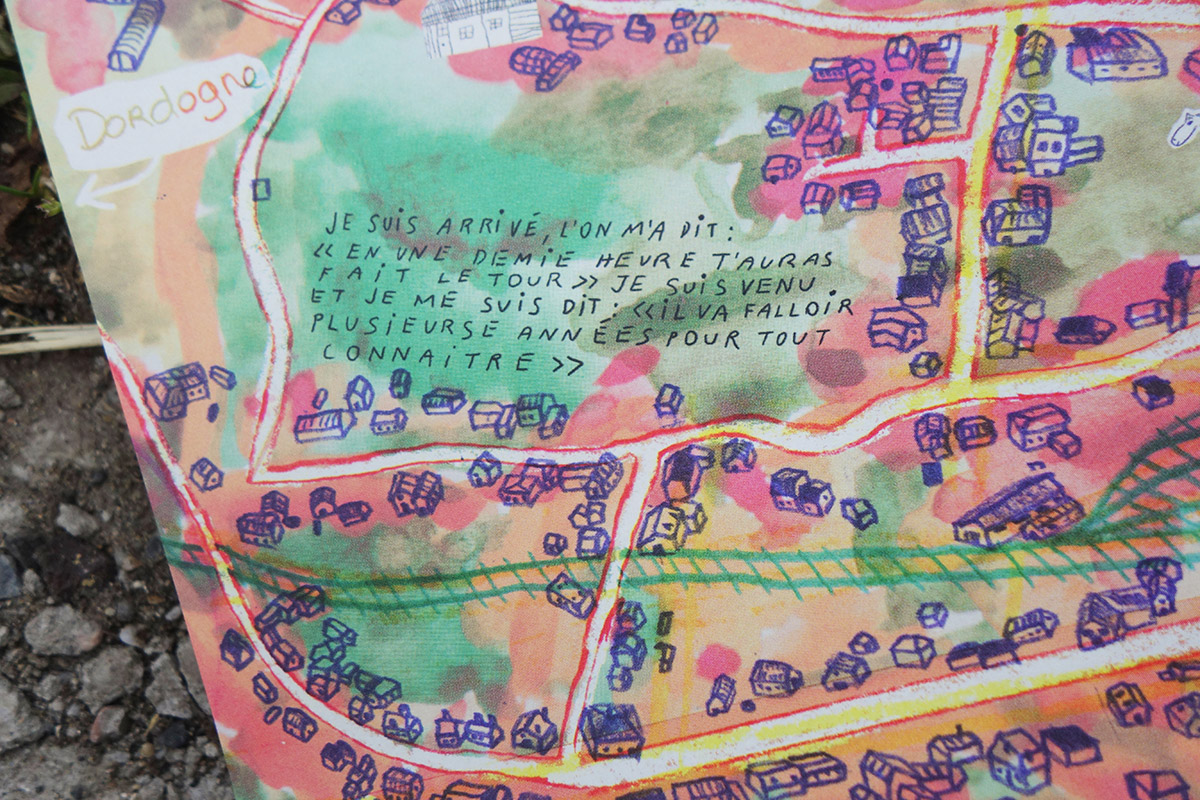 Dordogne
JE SUIS ARRIVÉ, L'ON M'A DIT :
« EN UNE DEMIE HEURE T'AURAS
FAIT LE TOUR » JE SUIS VENU
ET JE ME SUIS DIT : « IL VA FALLOIR
PLUSIEURSE ANNÉES POUR TOUT
CONNAITRE »